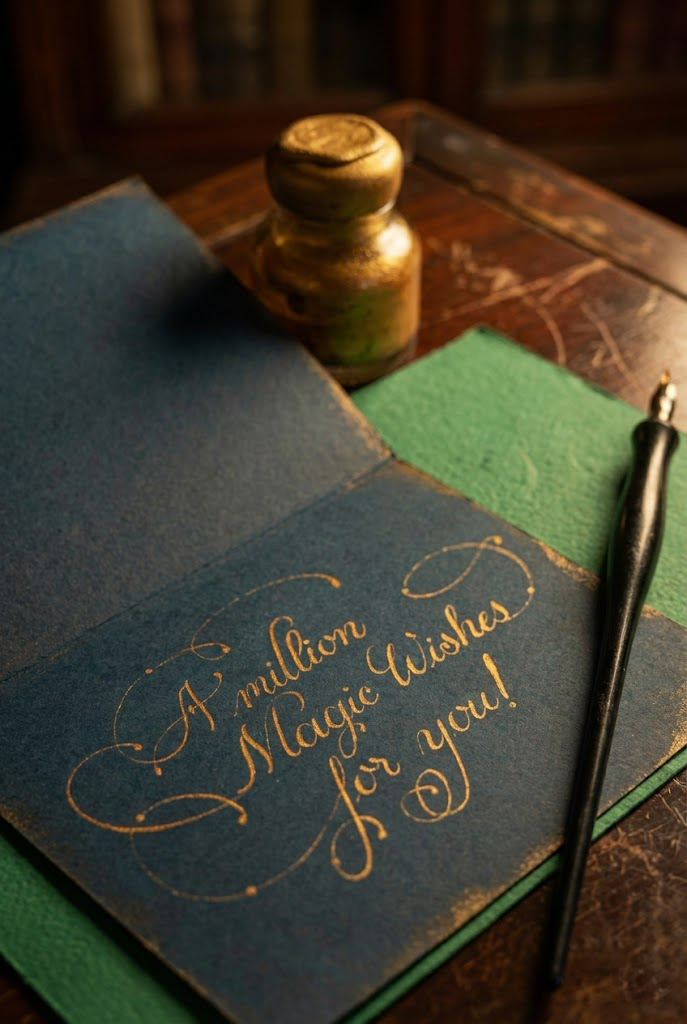 A million
Magic Wishes
for you!